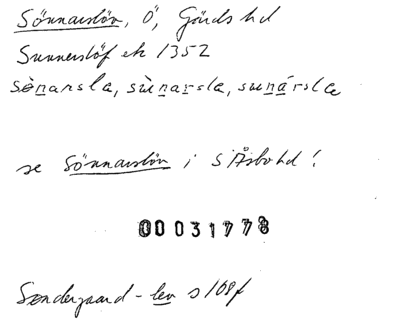 Sönnarslöv, Ö, Gärds hd
Sunnerslöf ek 1352
sònarsla, sùnarsla, sunársla
se Sönnarslöv i S Åsbo hd!
00031778
Søndergaard - lev s 108f